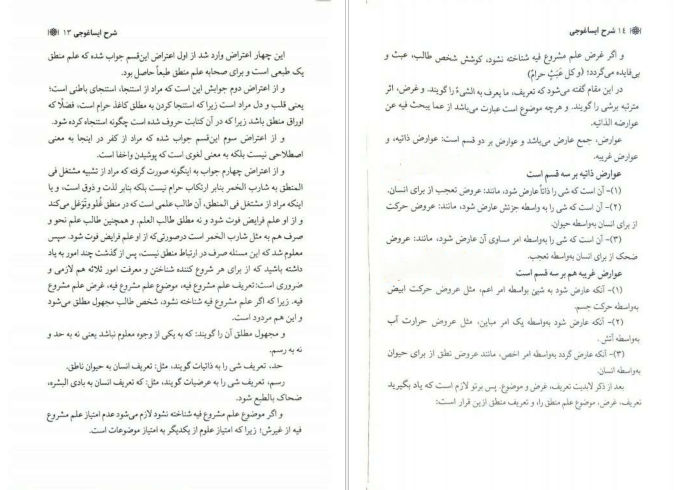 شرح ایساغوجی ۱۳
این چهار اعتراض وارد شد از اول اعتراض این‌قسم جواب شده که علم منطق
یک طبیعی است و برای صحابه علم منطق طبعاً حاصل بود.
و از اعتراض دوم جوابش این است که مراد از استنجا، استنجای باطنی است؛
یعنی قلب و دل مراد است زیرا که استنجا کردن به مطلق کاغذ حرام است، فضلًا که
اوراق منطق باشد زیرا که در آن کتابت حروف شده است چگونه استنجاء کرده شود.
و از اعتراض سوم این‌قسم جواب شده که مراد از کفر در اینجا به معنی
اصطلاحی نیست بلکه به معنی لغوی است که پوشیدن واخفا است.
و از اعتراض چهارم جواب به اینگونه صورت گرفته که مراد از تشبیه مشتغل فی
المنطق به شارب الخمر بنابر ارتکاب حرام نیست بلکه بنابر لذت و ذوق است، و یا
اینکه مراد از مشتغل فی المنطق، آن طالب علمی است که در منطق غُلو وتَوَغل می‌کند
و از او علم فرایض فوت شود و نه مطلق طالب العلم. و همچنین طالب علم نحو و
صرف هم به مثل شارب الخمر است درصورتی‌که از او علم فرایض فوت شود. سپس
معلوم شد که این مسئله صرف در ارتباط منطق نیست، پس از گذشت چند امور به یاد
داشته باشید که از برای هر شروع کننده شناختن و معرفت امور ثلاثه هم لازمی و
ضروری است:تعریف علم مشروع فیه، موضوع علم مشروع فیه، غرض علم مشروع
فیه. زیرا که اگر علم مشروع فیه شناخته نشود، شخص طالب مجهول مطلق می‌شود
و این هم مردود است.
و مجهول مطلق آن را گویند: که به یکی از وجوه معلوم نباشد یعنی نه به حد و
نه به رسم.
حد، تعریف شی را به ذاتیات گویند، مثل: تعریف انسان به حیوان ناطق.
رسم، تعریف شی را به عرضیات گویند، مثل: که تعریف انسان به بادی البشره،
ضحاک بالطبع شود.
و اگر موضوع علم مشروع فیه شناخته نشود لازم می‌شود عدم امتیاز علم مشروع
فیه از غیرش؛ زیرا که امتیاز علوم از یکدیگر به امتیاز موضوعات است.
۱۴ شرح ایساغوجی
و اگر غرض علم مشروع فیه شناخته نشود، کوشش شخص طالب، عبث و
بی‌فایده می‌گردد؛ (و کل عَبَثٍ حرامٌ)
در این مقام گفته می‌شود که تعریف، ما یعرف به الشیءُ را گویند. و غرض، اثر
مترتبه برشی را گویند. و هرچه موضوع است عبارت می‌باشد از عما یبحث فیه عن
عوارضه الذاتیه.
عوارض، جمع عارض می‌باشد و عوارض بر دو قسم است: عوارض ذاتیه، و
عوارض غریبه.
عوارض ذاتیه بر سه قسم است
(۱)- آن است که شی را ذاتاً عارض شود، مانند: عروض تعجب از برای انسان.
(۲)- آن است که شی را به واسطه جزئش عارض شود، مانند: عروض حرکت
از برای انسان به‌واسطه حیوان.
(۳)- آن است که شی را به‌واسطه امر مساوی آن عارض شود، مانند: عروض
ضحک از برای انسان به‌واسطه تعجب.
عوارض غریبه هم بر سه قسم است
(۱)- آنکه عارض شود به شیئ بواسطه امر اعم، مثل: عروض حرکت ابیض
به‌واسطه حرکت جسم.
(۲)- آنکه عارض شود به‌واسطه یک امر مباین، مثل: عروض حرارت آب
به‌واسطه آتش.
(۳)- آنکه عارض گردد به‌واسطه امر اخص، مانند عروض نطق از برای حیوان
به‌واسطه انسان.
بعد از ذکر لابدیت تعریف، غرض و موضوع. پس برتو لازم است که یاد بگیرید
تعریف، غرض، موضوع علم منطق را، و تعریف منطق ازین قرار است: